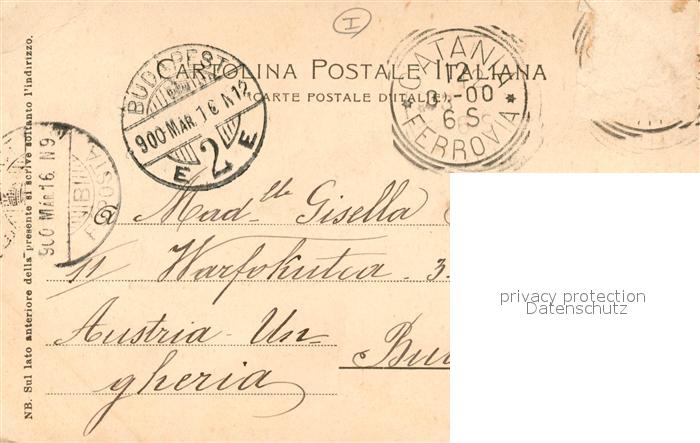 I
CARTOLINA POSTALE ITALIANA
(CARTE POSTALE D'ITALIE)
BUDAPEST
900 MAR. 16 N12
E 2 E
CATANIA
12
00
6 S
* FERROVIA *
900 MAR. 16. N9
POSTA
Mad.lle Gisella
11 Warfokutca. 3.
Austria-Un-
gheria
Bu
NB. Sul lato anteriore della presente si scrive soltanto l'indirizzo.
privacy protection
Datenschutz